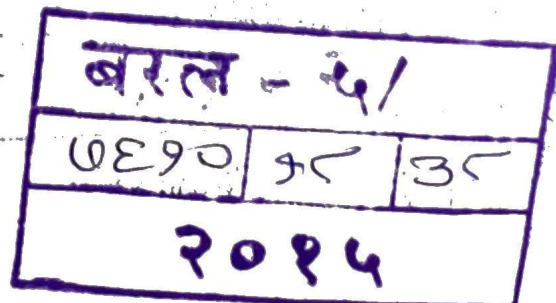 बरल - ५/
७६१० १८ ३८
२०१५